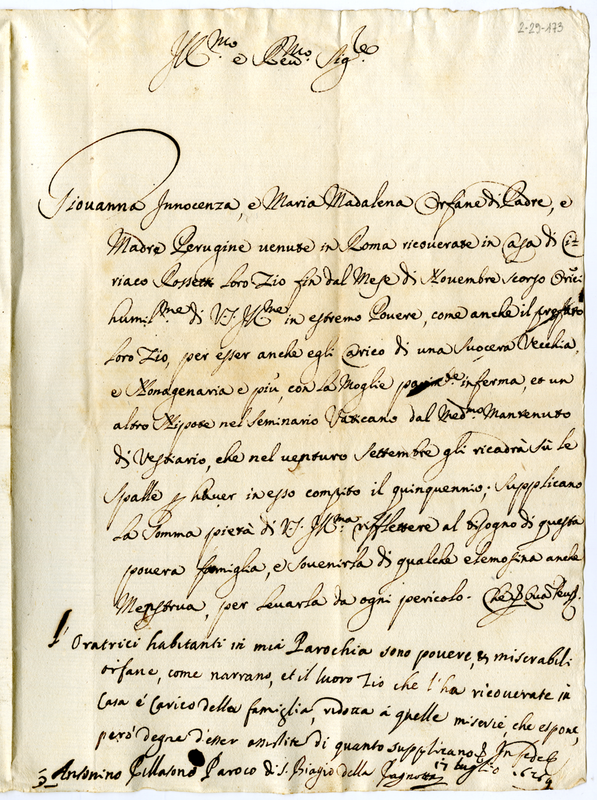 2-29-173
Ill.mo e Rev.mo Sig.re
Giovanna Innocenza, e Maria Madalena Orfane di Padre, e
Madre Perugine venute in Roma ricoverate in Casa di Ci-
riaco Rossetti loro Zio fin dal Mese di Novembre scorso Or.ci
humil.me di V.S. Ill.me in estremo Povere, come anche il prefato
loro Zio, per esser anche egli Carico di una Suocera Vecchia,
e Nonagenaria e più, con la Moglie inferma, et un
altro Nipote nel Seminario Vaticano dal Med.mo Mantenuto
di Vestiario, che nel venturo Settembre gli ricadrà sù le
Spalle p haver in esso compito il quinquennio; Supplicano
la Somma pietà di V.S. Ill.ma riflettere al bisogno di questa
povera famiglia, e sovenirla di qualche elemosina anche
Menstrua, per levarla da ogni pericolo.
L'Oratrici habitanti in mia Parochia sono povere, & miserabili
orfane, come narrano, et il loro Zio che l'ha ricoverate in
Casa é Carico della famiglia, ridotta à quelle miserie, che espone,
però degne d'esser assistite di quanto supplicano & In fede
Antonino Paroco di S. Biagio della Pagnotta luglio